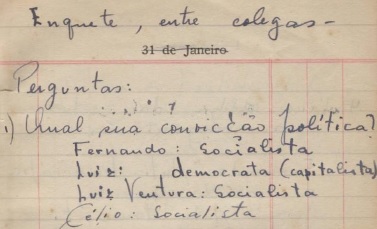 Enquete, entre colegas -
31 de Janeiro
- Perguntas:
1) Qual sua convicção política?
Fernando: Socialista
Luiz: democrata (capitalista)
Luiz Ventura: Socialista
Célio: Socialista